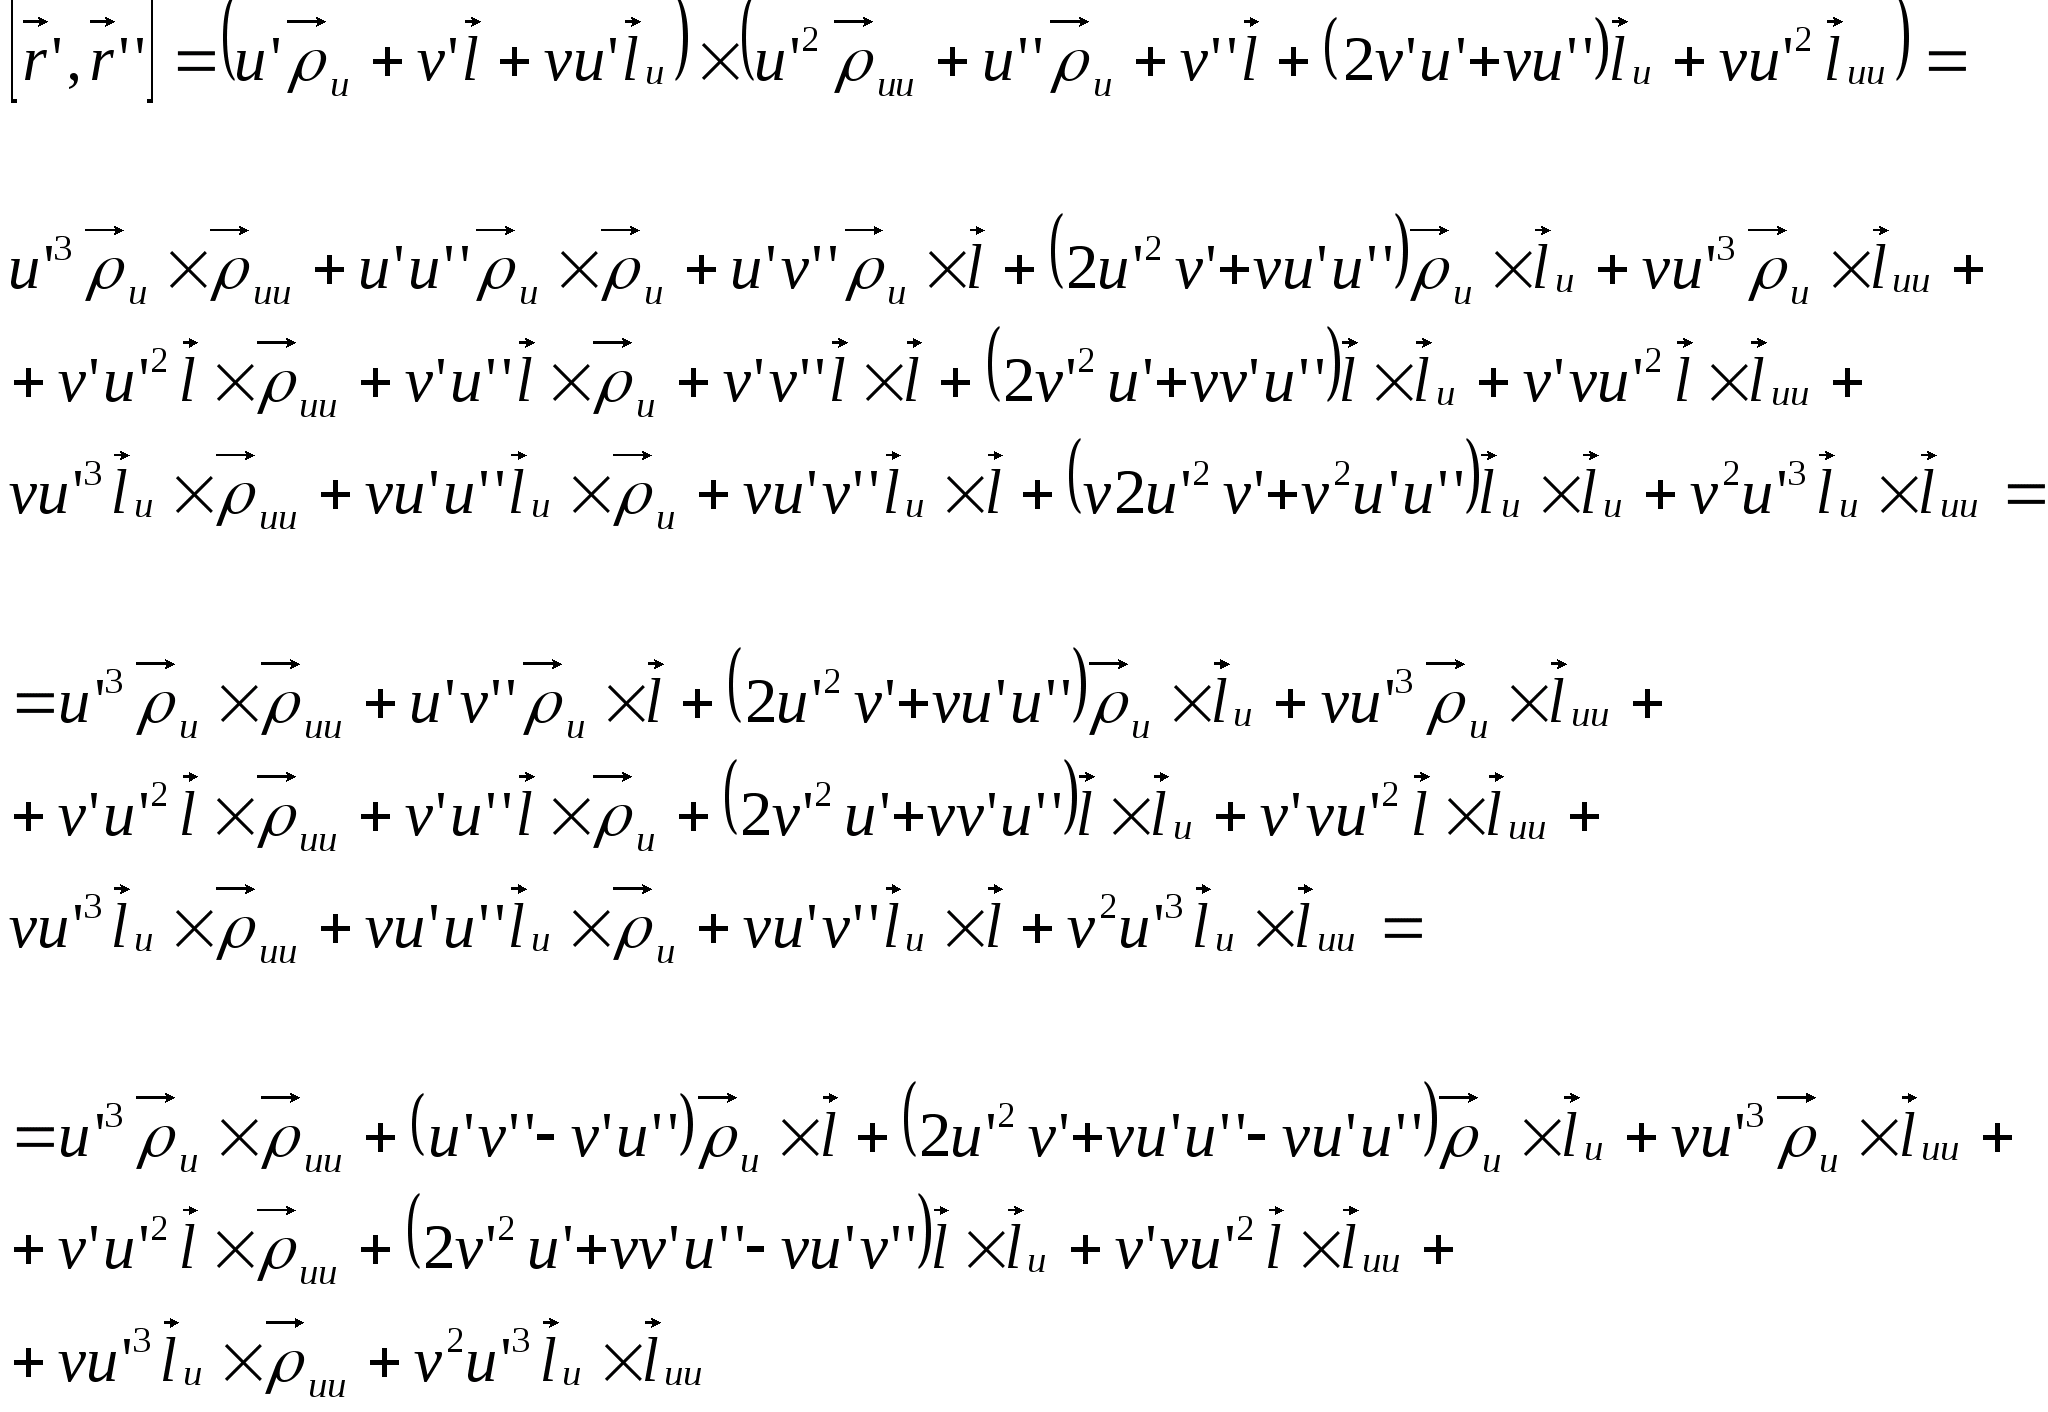 [r⃗', r⃗''] = (u'ρ⃗_u + v'l⃗ + vu'l⃗_u) × (u'²ρ⃗_uu + u''ρ⃗_u + v''l⃗ + (2v'u'+vu'')l⃗_u + vu'²l⃗_uu) =
u'³ρ⃗_u × ρ⃗_uu + u'u''ρ⃗_u × ρ⃗_u + u'v''ρ⃗_u × l⃗ + (2u'²v'+vu'u'')ρ⃗_u × l⃗_u + vu'³ρ⃗_u × l⃗_uu +
+ v'u'²l⃗ × ρ⃗_uu + v'u''l⃗ × ρ⃗_u + v'v''l⃗ × l⃗ + (2v'²u'+vv'u'')l⃗ × l⃗_u + v'vu'²l⃗ × l⃗_uu +
vu'³l⃗_u × ρ⃗_uu + vu'u''l⃗_u × ρ⃗_u + vu'v''l⃗_u × l⃗ + (v2u'²v'+v²u'u'')l⃗_u × l⃗_u + v²u'³l⃗_u × l⃗_uu =
= u'³ρ⃗_u × ρ⃗_uu + u'v''ρ⃗_u × l⃗ + (2u'²v'+vu'u'')ρ⃗_u × l⃗_u + vu'³ρ⃗_u × l⃗_uu +
+ v'u'²l⃗ × ρ⃗_uu + v'u''l⃗ × ρ⃗_u + (2v'²u'+vv'u'')l⃗ × l⃗_u + v'vu'²l⃗ × l⃗_uu +
vu'³l⃗_u × ρ⃗_uu + vu'u''l⃗_u × ρ⃗_u + vu'v''l⃗_u × l⃗ + v²u'³l⃗_u × l⃗_uu =
= u'³ρ⃗_u × ρ⃗_uu + (u'v''- v'u'')ρ⃗_u × l⃗ + (2u'²v'+vu'u''- vu'u'')ρ⃗_u × l⃗_u + vu'³ρ⃗_u × l⃗_uu +
+ v'u'²l⃗ × ρ⃗_uu + (2v'²u'+vv'u''- vu'v'')l⃗ × l⃗_u + v'vu'²l⃗ × l⃗_uu +
+ vu'³l⃗_u × ρ⃗_uu + v²u'³l⃗_u × l⃗_uu